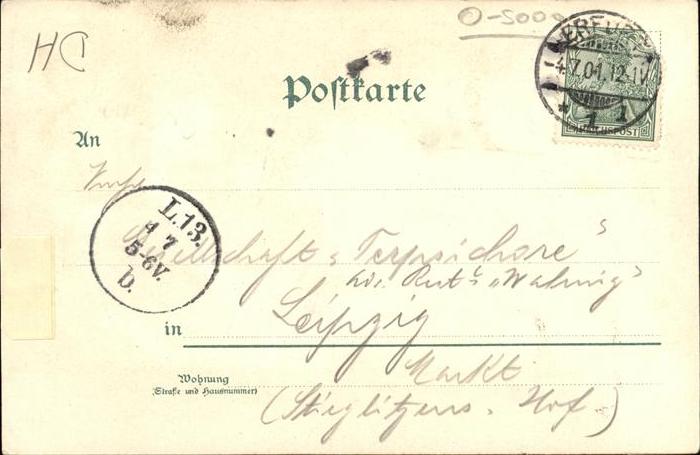 O-5000
DH
ERFURT
4.7.01.12-1V
* 1 1
REICHSPOST
Postkarte
An
L.13.
4 7
5-6V.
b.
Gesellschaft „Terpsichore"
„Walhnig"
in Leipzig
Markt
Wohnung
(Straße und Hausnummer)
(Stieglitzens Hof.)